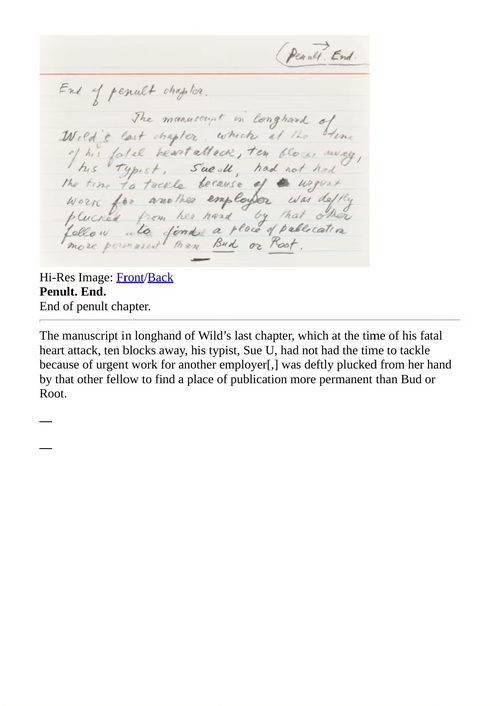 Penult. End.
End of penult chapter.
The manuscript in longhand of
Wild's last chapter, which at the time
of his fatal heart attack, ten blocks away,
his typist, Sue U, had not had
the time to tackle because of urgent
work for another employer was deftly
plucked from her hand by that other
fellow to find a place of publication
more permanent than Bud or Root.
Hi-Res Image: Front/Back
Penult. End.
End of penult chapter.
The manuscript in longhand of Wild’s last chapter, which at the time of his fatal
heart attack, ten blocks away, his typist, Sue U, had not had the time to tackle
because of urgent work for another employer[,] was deftly plucked from her hand
by that other fellow to find a place of publication more permanent than Bud or
Root.
—
—